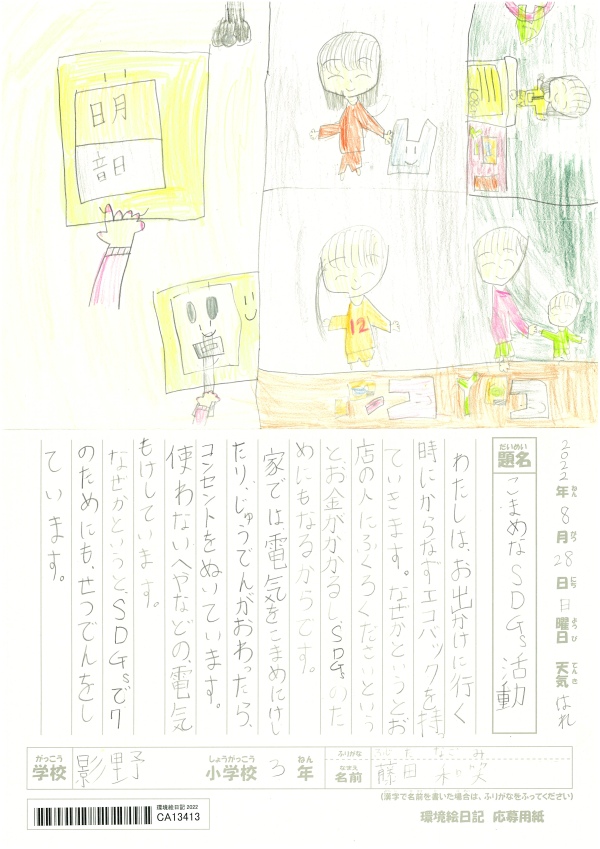 明
暗
12
2022年8月28日日曜日 天気はれ
ねん がつ にち ようび てんき
だいめい
題名
こまめなSDGs活動
わたしは、お出かけに行く
時にからなずエコバックを持
ていきます。なぜかというとお
店の人にふくろくださいという
とお金がかかるし、SDGsのた
めにもなるからです。
家では、電気をこまめにけし
たり、じゅうでんがおわったら、
コンセントをぬいています。
使わないへやなどの、電気
もけしています。
なぜかというと、SDGsで7
のためにも、せつでんをし
ています。
がっこう しょうがっこう ねん ふりがな ふじた なごみ
学校 影野 小学校 3年 なまえ 名前 藤田 和笑
(漢字で名前を書いた場合は、ふりがなをふってください)
環境絵日記 応募用紙
環境絵日記 2022
CA13413